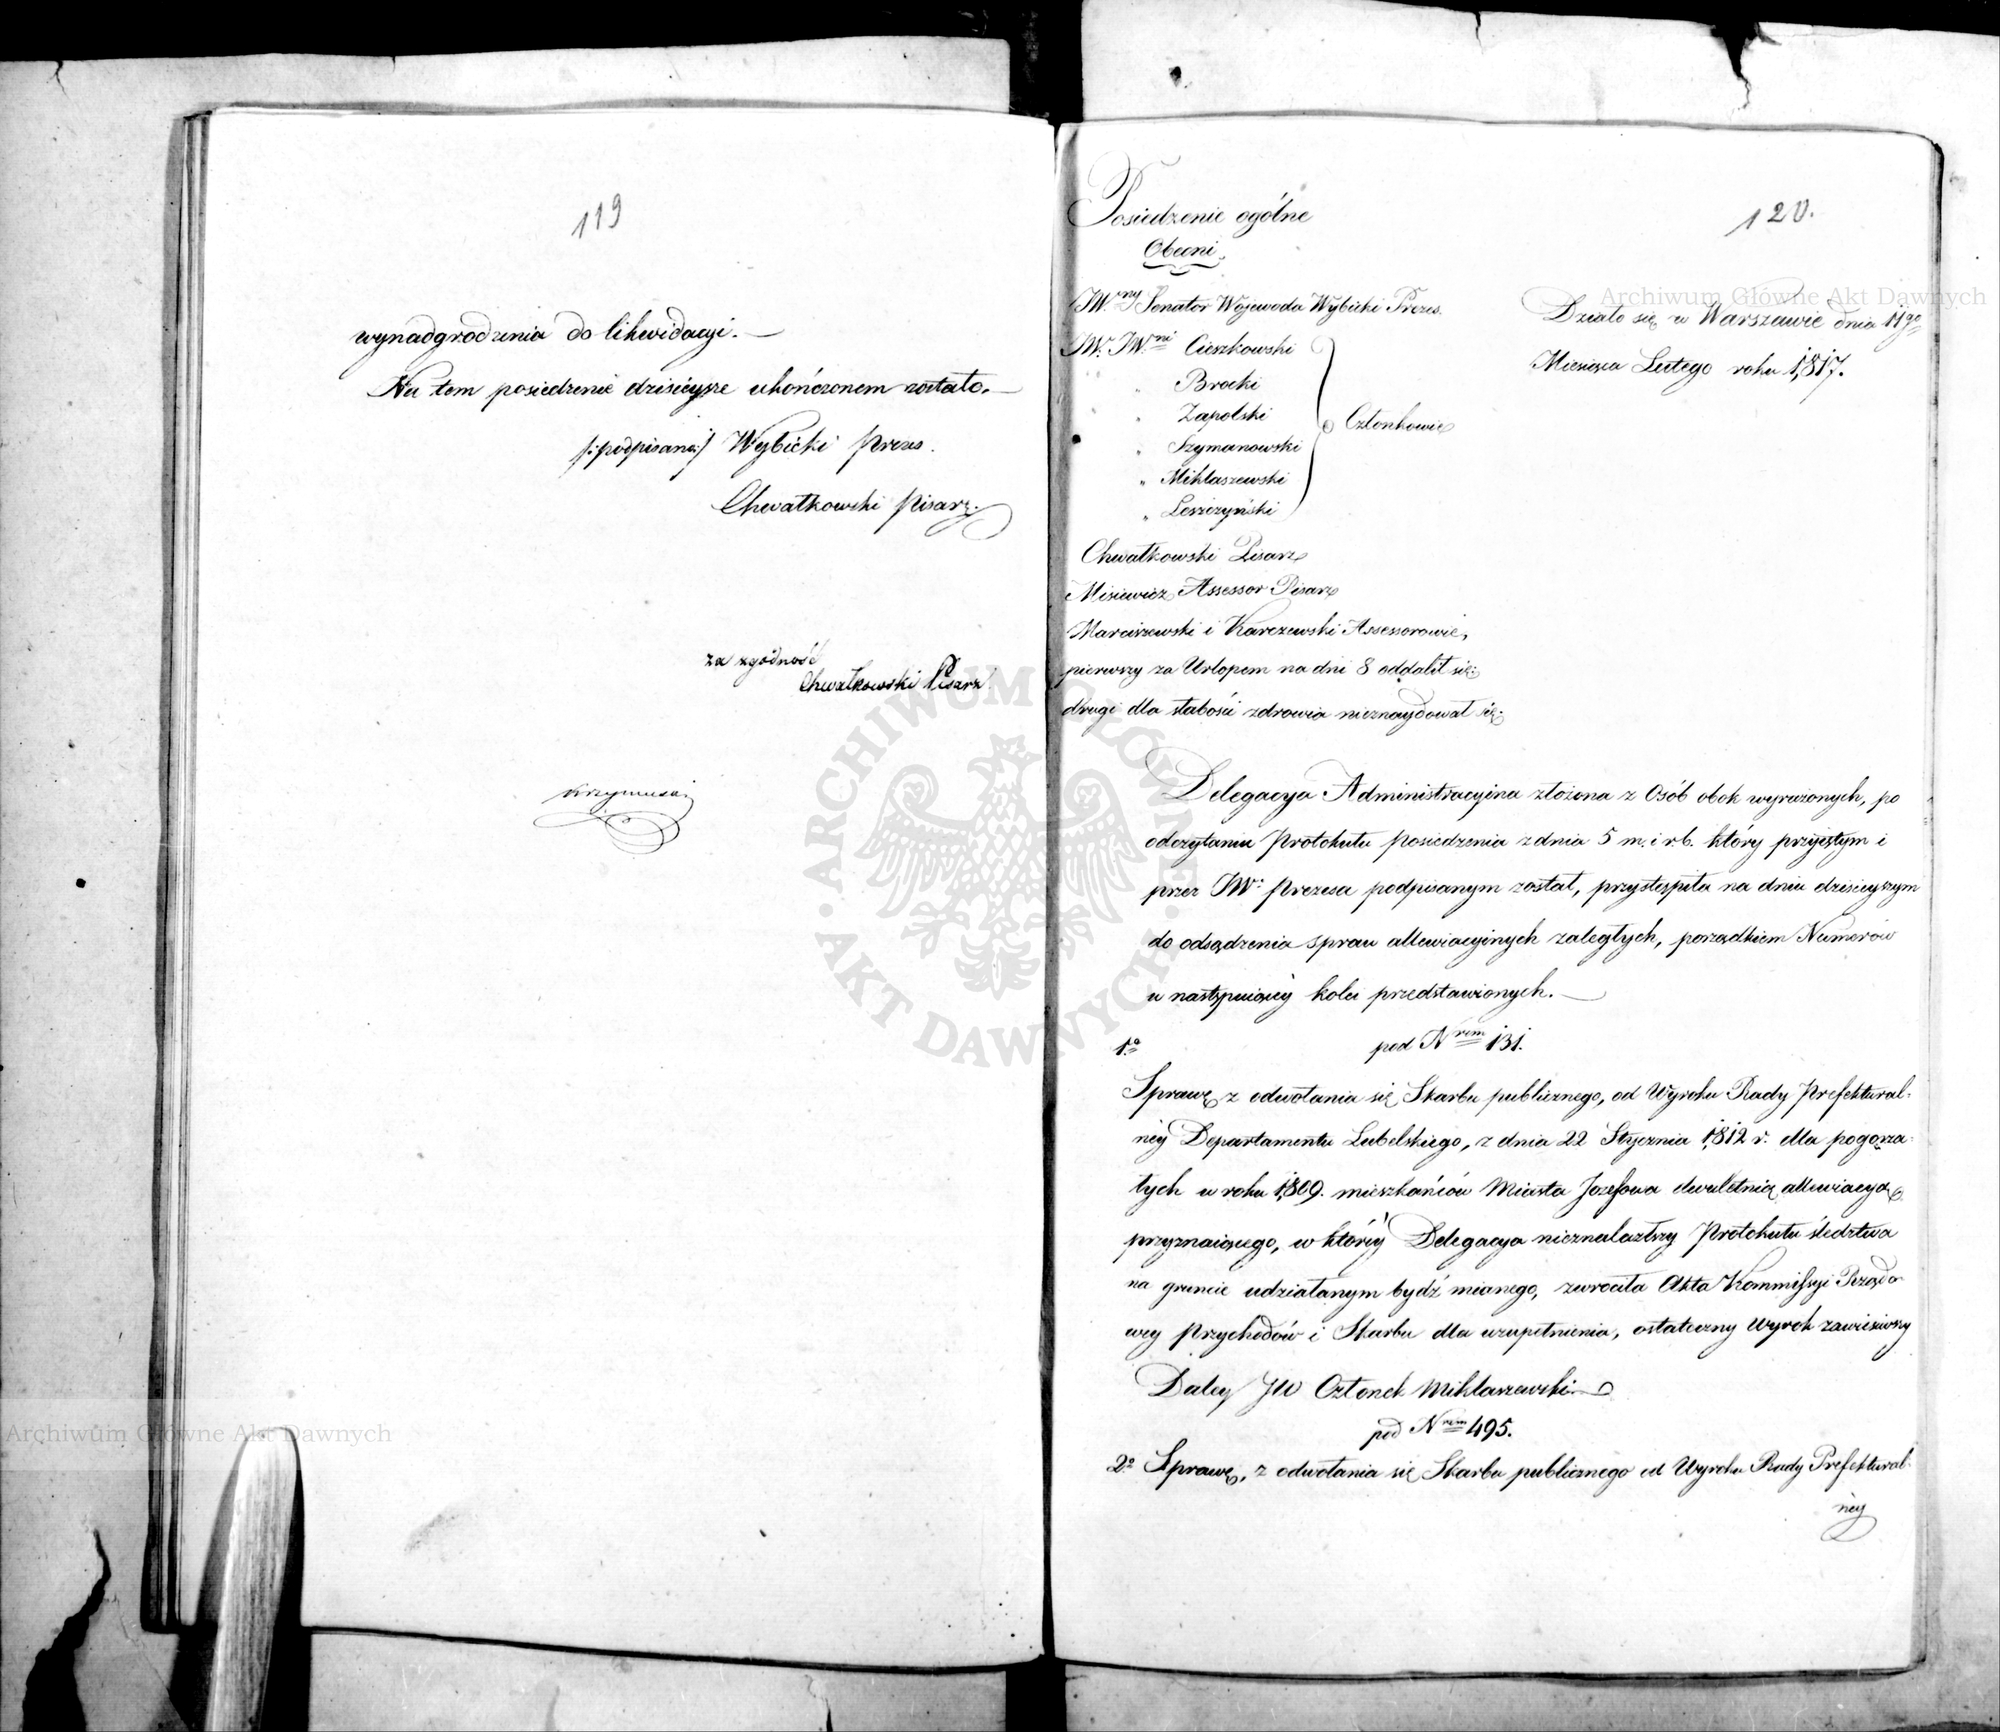 119
wynadgrodzenia do likwidacyi. —
Na tem posiedzenie dzisieysze ukończonem zostało. —
/:podpisano:/ Wybicki Prezes.
Chwałkowski Pisarz.
za zgodność
Chwałkowski Pisarz
120.
Posiedzenie ogólne
Obecni.
JW.ny Senator Wojewoda Wybicki Prezes.
JW. JW.ni Cieszkowski
" Brocki
" Zapolski
" Szymanowski
" Miklaszewski
" Leszczyński
Członkowie
Chwałkowski Pisarz
Misiewicz Assessor Pisarz
Marciszewski i Karczewski Assessorowie,
pierwszy za Urlopem na dni 8 oddalił się:
drugi dla słabości zdrowia nieznaydował się:
Działo się w Warszawie dnia 11go
Miesiąca Lutego roku 1817.
Delegacya Administracyina złożona z Osób obok wyrażonych, po
odczytaniu Protokułu posiedzenia z dnia 5 m. i r b. który przyiętym i
przez JW: Prezesa podpisanym został, przystąpiła na dniu dzisieyszym
do odsądzenia spraw allewiacyinych zaległych, porządkiem Numerów
w następuiącéy kolei przedstawionych. —
1o pod Nrem 131.
Sprawę z odwołania się Skarbu publicznego, od Wyroku Rady Prefektural-
néy Departamentu Lubelskiego, z dnia 22 Stycznia 1812 r. dla pogorza-
łych w roku 1809. mieszkańców Miasta Jozefowa dwuletnią allewiacyą
przyznaiącego, w któréy Delegacya nieznalazłszy Protokułu śledztwa
na gruncie udziałanym bydź mianego, zwrociła Akta Kommissyi Rządo-
wey Przychodów i Skarbu dla uzupełnienia, ostateczny Wyrok zawiesiwszy
Daley JW Członek Miklaszewski
pod Nrem 495.
2o Sprawę, z odwołania się Skarbu publicznego od Wyroku Rady Prefektural-
néy
Archiwum Główne Akt Dawnych
Archiwum Główne Akt Dawnych
ARCHIWUM GŁÓWNE · AKT DAWNYCH ·